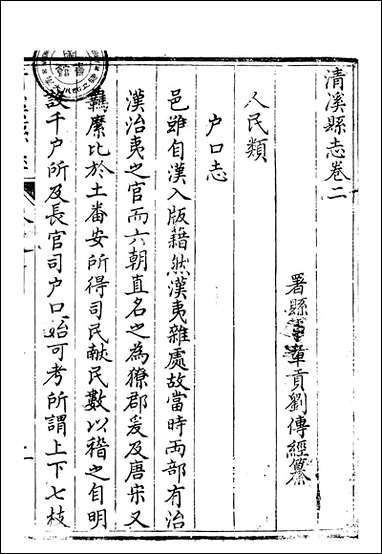 清溪縣志卷二
署縣事章貢劉傳經纂
人民類
户口志
邑雖自漢入版藉然漢夷雜處故當時両部有治
漢治夷之官而六朝直名之為獠郡爰及唐宋又
羈縻比於土番安所得司民献民數以稽之自明
設千户所及長官司户口始可考所謂上下七枝